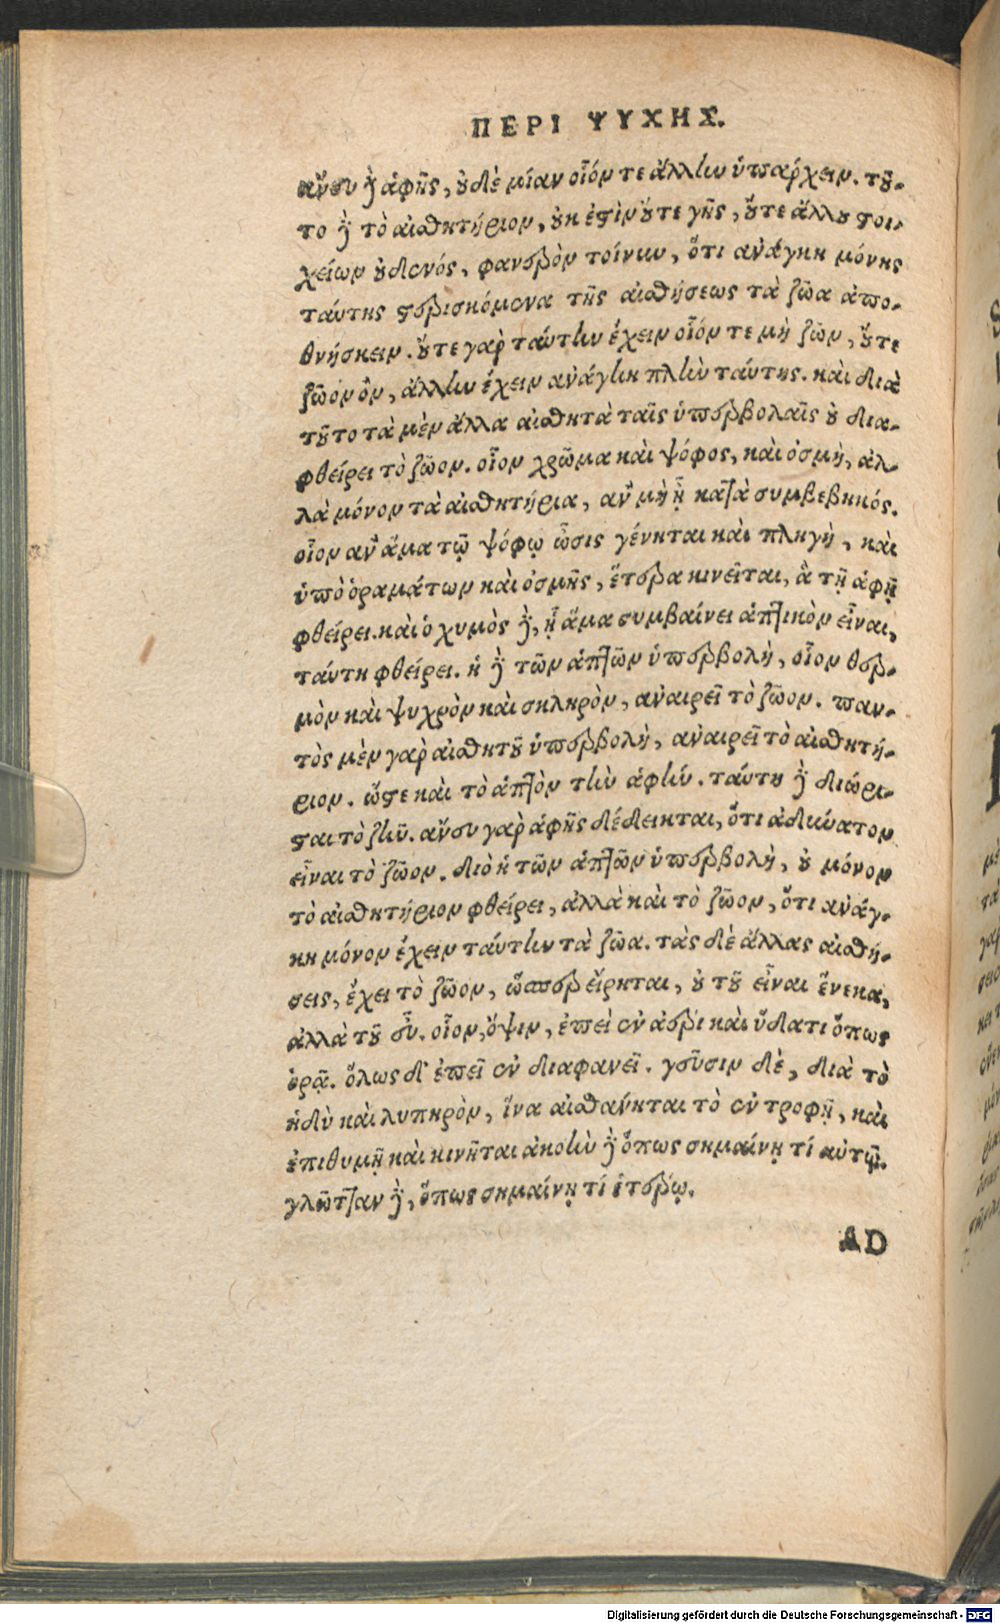 ΠΕΡΙ ΨΥΧΗΣ.
ἄνευ δὲ ἁφῆς, οὐδὲ μίαν οἷόν τε ἄλλην ὑπάρχειν. τοῦ-
το δὲ τὸ αἰσθητήριον, οὐκ ἐστὶν οὔτε γῆς, οὔτε ἄλλου στοι-
χείων οὐδενός, φανερὸν τοίνυν, ὅτι ἀνάγκη μόνης
ταύτης στερισκόμενα τῆς αἰσθήσεως τὰ ζῶα ἀπο-
θνήσκειν. οὔτε γὰρ ταύτην ἔχειν οἷόν τε μὴ ζῶν, οὔτε
ζῶον ὂν, ἄλλην ἔχειν ἀνάγκη πλὴν ταύτης. καὶ διὰ
τοῦτο τὰ μὲν ἄλλα αἰσθητὰ ταῖς ὑπερβολαῖς οὐ δια-
φθείρει τὸ ζῶον. οἷον χρῶμα καὶ ψόφος, καὶ ὀσμὴ, ἀλ-
λὰ μόνον τὰ αἰσθητήρια, ἂν μὴ ᾖ κατὰ συμβεβηκός.
οἷον ἂν ἅμα τῷ ψόφῳ ὦσις γένηται καὶ πληγὴ, καὶ
ὑπὸ ὁραμάτων καὶ ὀσμῆς, ἕτερα κινεῖται, ἃ τῇ ἁφῇ
φθείρει. καὶ ὁ χυμὸς δὲ, ᾗ ἅμα συμβαίνει ἁπτικὸν εἶναι,
ταύτη φθείρει. ἡ δὲ τῶν ἁπτῶν ὑπερβολὴ, οἷον θερ-
μὸν καὶ ψυχρὸν καὶ σκληρὸν, ἀναιρεῖ τὸ ζῶον. παν-
τὸς μὲν γὰρ αἰσθητοῦ ὑπερβολὴ, ἀναιρεῖ τὸ αἰσθητή-
ριον. ὥστε καὶ τὸ ἁπτὸν τὴν ἁφήν. ταύτη δὲ διώρι-
σται τὸ ζῆν. ἄνευ γὰρ ἁφῆς δέδεικται, ὅτι ἀδύνατον
εἶναι τὸ ζῶον. διὸ ἡ τῶν ἁπτῶν ὑπερβολὴ, οὐ μόνον
τὸ αἰσθητήριον φθείρει, ἀλλὰ καὶ τὸ ζῶον, ὅτι ἀνάγ-
κη μόνον ἔχειν ταύτην τὰ ζῶα. τὰς δὲ ἄλλας αἰσθή-
σεις, ἔχει τὸ ζῶον, ὥσπερ εἴρηται, οὐ τοῦ εἶναι ἕνεκα,
ἀλλὰ τοῦ εὖ. οἷον, ὄψιν, ἐπεὶ ἐν ἀέρι καὶ ὕδατι ὅπως
ὁρᾷ. ὅλως δ' ἐπεὶ ἐν διαφανεῖ. γεῦσιν δὲ, διὰ τὸ
ἡδὺ καὶ λυπηρὸν, ἵνα αἰσθάνηται τὸ ἐν τροφῇ, καὶ
ἐπιθυμῇ καὶ κινῆται ἀκοὴν δὲ ὅπως σημαίνῃ τί αὐτῷ.
γλῶτταν δὲ, ὅπως σημαίνῃ τί ἑτέρῳ.
AD
Digitalisierung gefördert durch die Deutsche Forschungsgemeinschaft - DFG